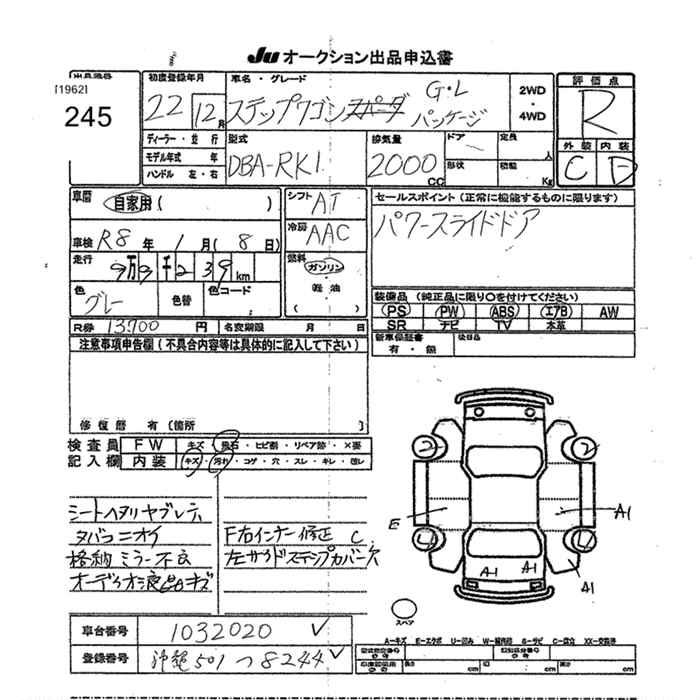 Ju オークション出品申込書
出品番号 初度登録年月 車名・グレード 評価点
[1962]
245
22 12月 ステップワゴンスパーダ G・L パッケージ
2WD ・ 4WD
R
外装 内装
C D
ディーラー・並行
モデル年式 年
ハンドル 左・右
型式 DBA-RK1
排気量 2000 CC
ドア 形状
定員 人 積載 Kg
車歴 自家用 ( )
シフト AT
冷房 AAC
燃料 ガソリン ・ 軽油 ( )
セールスポイント (正常に機能するものに限ります)
パワースライドドア
車検 R8年 1月 (8日)
走行 9万9千239km
色 グレー 色替 色コード
R券 13700円 名変期限 月 日
装備品 (純正品に限り○を付けてください)
PS PW ABS エアB AW
SR ナビ TV 本革
新車保証書 有・無 後日品
注意事項申告欄 (不具合内容等は具体的に記入して下さい)
修復歴 有 (箇所
検査員 FW キズ・飛石・ヒビ割・リペア跡・×要
記入欄 内装 キズ・汚れ・コゲ・穴・スレ・キレ・
シートヘタリヤブレ
タバコニオイ
格納ミラー不良
オーディオ液晶キズ
F右インナー修正 C
左サイドステップカバー欠
2 2
E A1
4 4
A1 A1 A1
スペア
車台番号 1032020
登録番号 沖縄501つ8244
A-キズ E-エクボ U-凹み W-補修跡 S-サビ C-腐食 XX-交換済
長さ cm 幅 cm 高さ cm